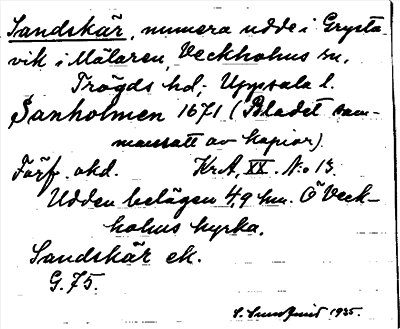 Sandskär, numera udde i Grysta-
vik i Mälaren, Veckholms sn,
Trögds hd, Uppsala l.
Sanholmen 1671 (Bladet sam-
mansatt av kopior)
Förf. okd. KrA, XX. No 13.
Udden belägen 4,9 km. Ö Veck-
holms kyrka.
Sandskär ek.
G. 75.
1935.